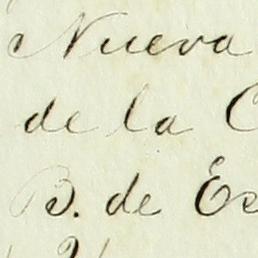 Nueva
de la C
B. de Es